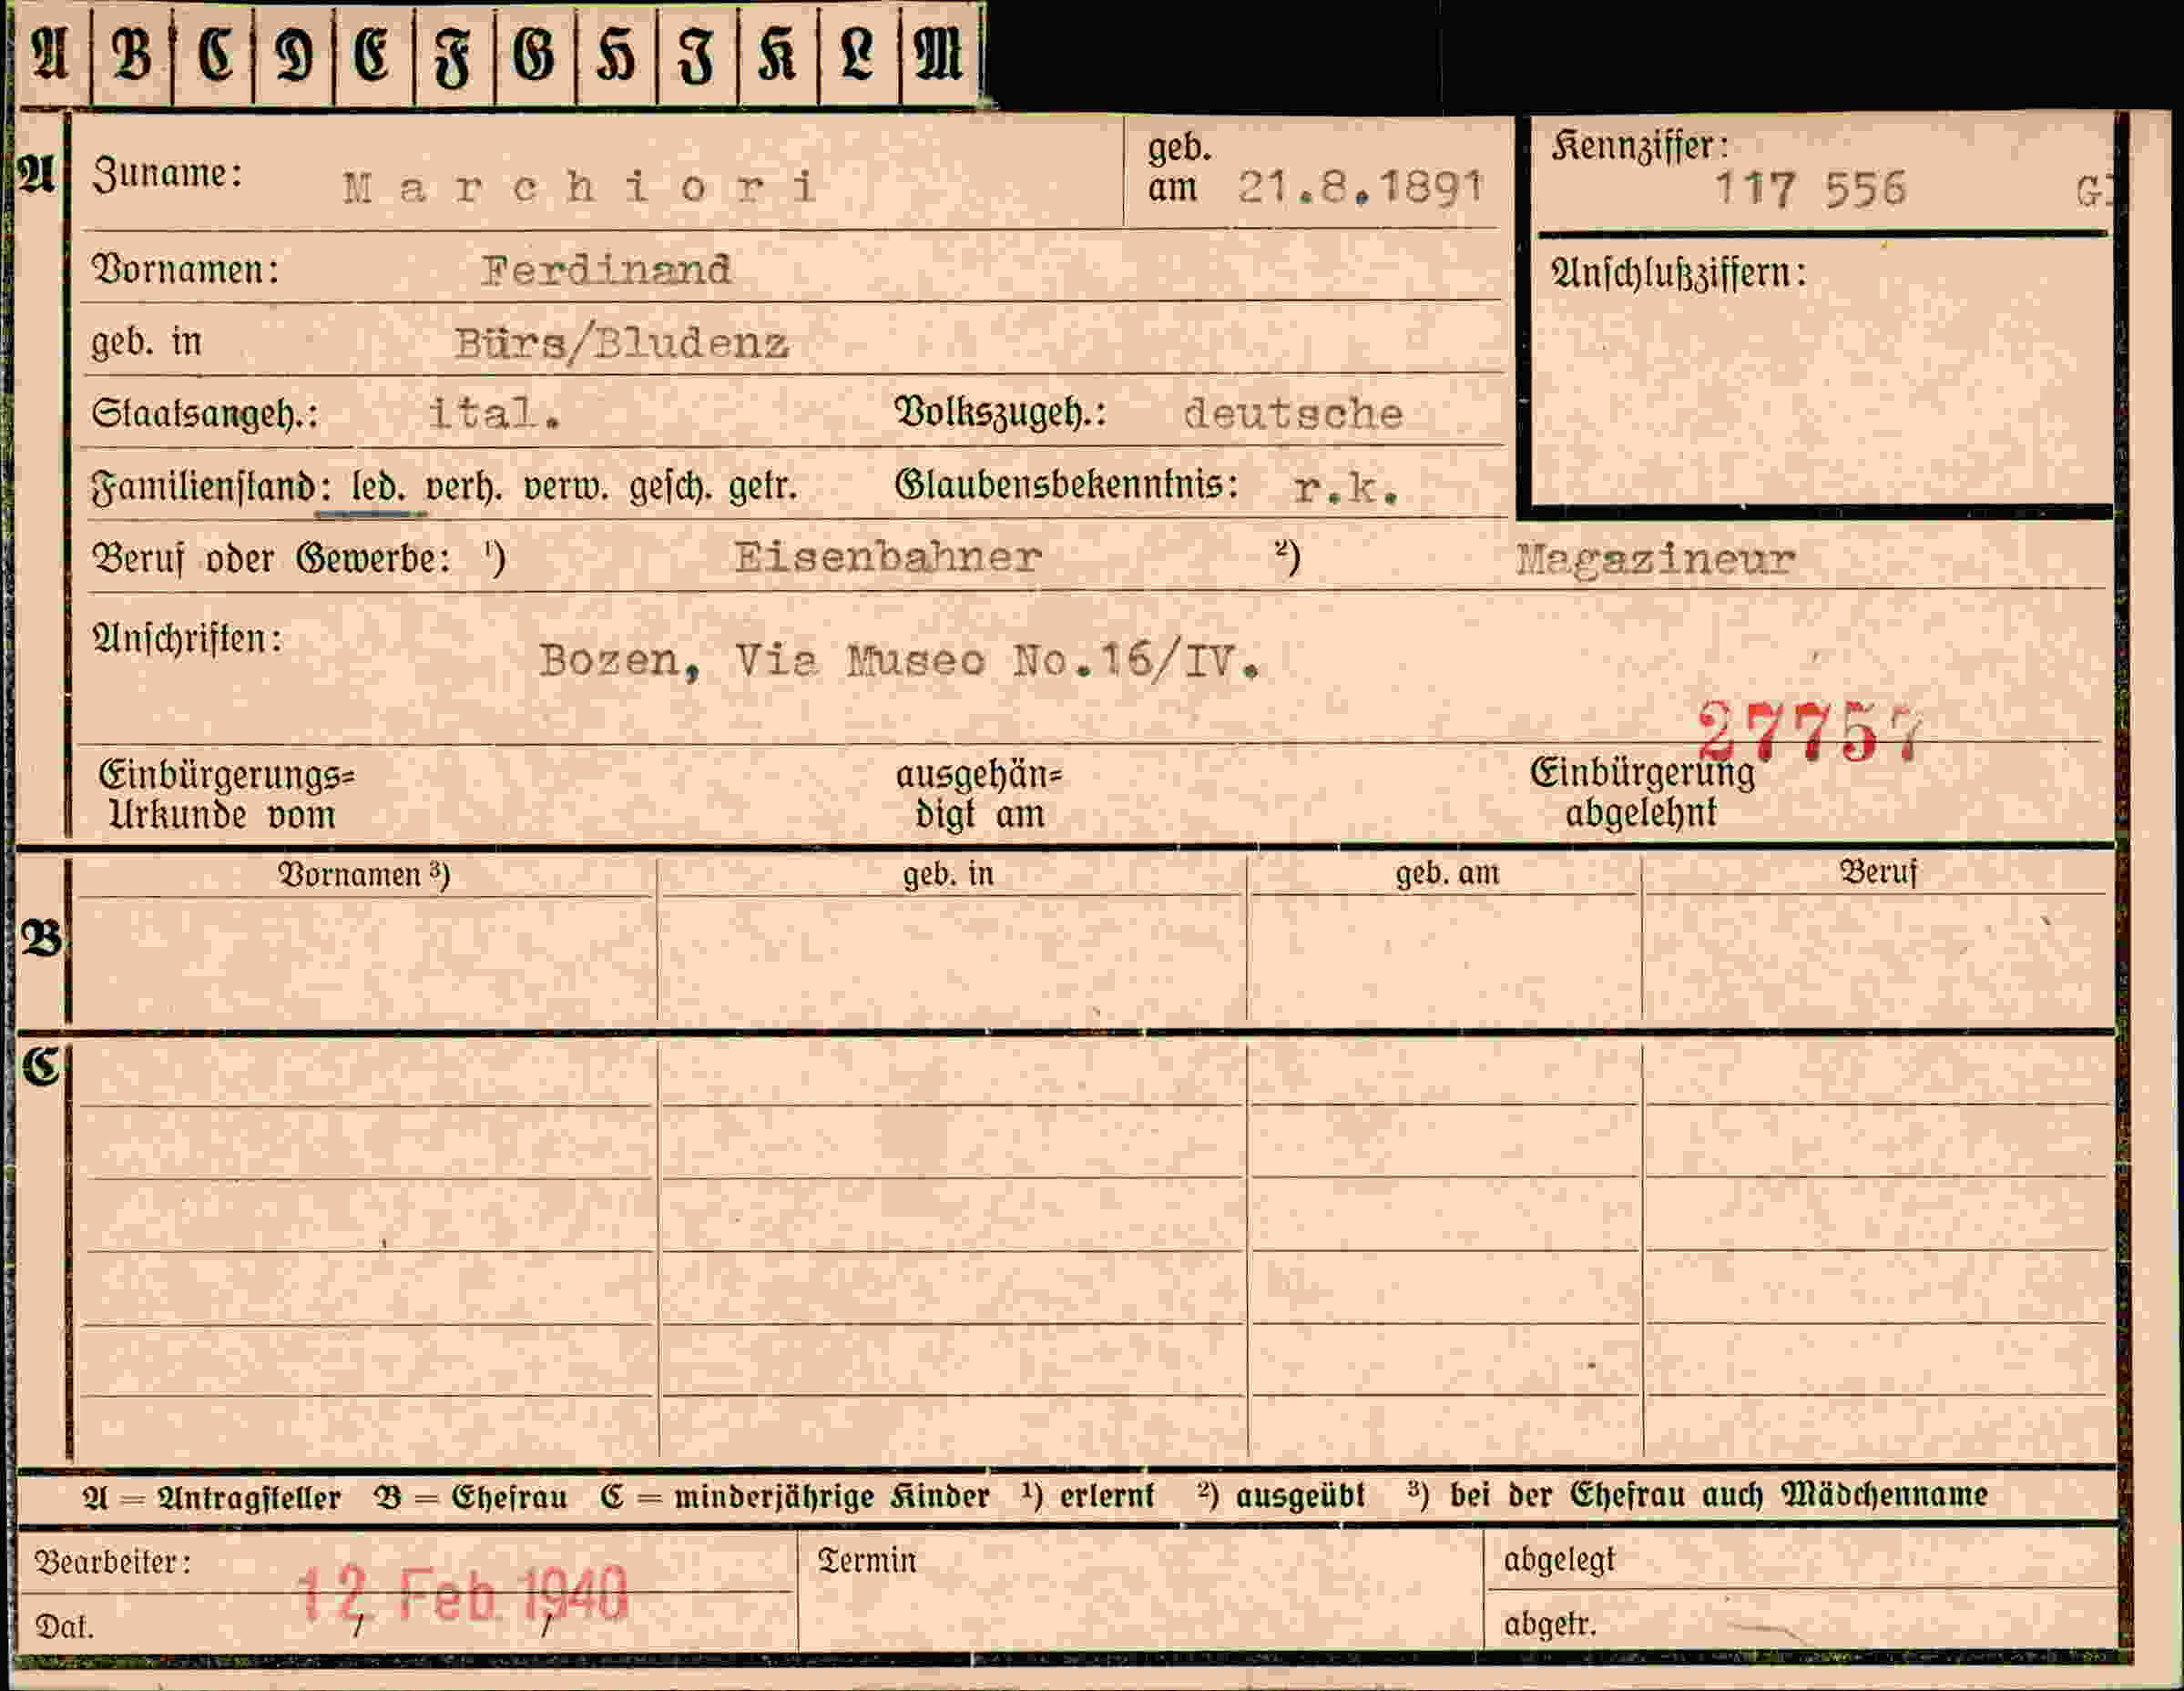 A B C D E F G H I K L M
A Zuname: Marchiori geb. am 21.8.1891 Kennziffer: 117 556
Vornamen: Ferdinand Anschlußziffern:
geb. in Bürs/Bludenz
Staatsangeh.: ital. Volkszugeh.: deutsche
Familienstand: led. verh. verw. gesch. getr. Glaubensbekenntnis: r.k.
Beruf oder Gewerbe: ¹) Eisenbahner ²) Magazineur
Anschriften: Bozen, Via Museo No.16/IV.
27757
Einbürgerungs= ausgehän= Einbürgerung
Urkunde vom digt am abgelehnt
Vornamen ³) geb. in geb. am Beruf
B
C
A = Antragsteller B = Ehefrau C = minderjährige Kinder ¹) erlernt ²) ausgeübt ³) bei der Ehefrau auch Mädchenname
Bearbeiter: Termin abgelegt
12 Feb 1940
Dat. abgetr.